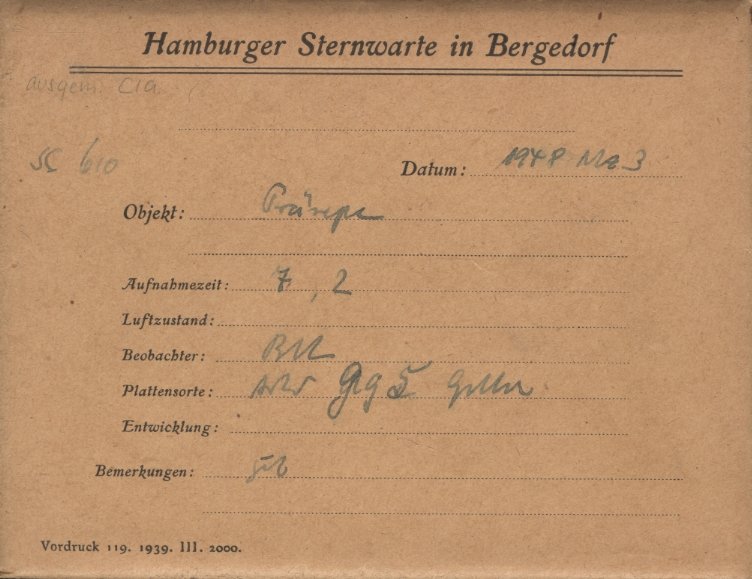 Hamburger Sternwarte in Bergedorf
ausgem. CIA
SC 610
Datum: 1948 Mz 3
Objekt: Präsepe
Aufnahmezeit: 7, 2
Luftzustand:
Beobachter:
Plattensorte: gg 5
Entwicklung:
Bemerkungen: gut
Vordruck 119. 1939. III. 2000.